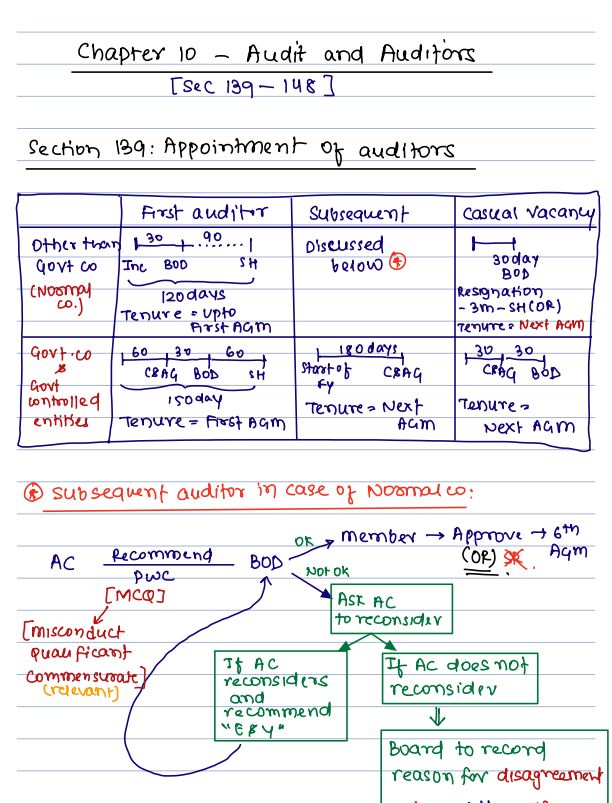 Chapter 10 - Audit and Auditors
[Sec 139-148]
Section 139: Appointment of auditors
First auditor
Subsequent
Casual Vacancy
Other than
Govt co
(Normal
co.)
30 90
Inc BOD SH
120 days
Tenure = upto
First AGM
Discussed
below *
30 day
BOD
Resignation
- 3m - SH (OR)
Tenure = Next AGM
Govt. co
&
Govt
controlled
entities
60 30 60
C&AG BOD SH
150 day
Tenure = First AGM
180 days
Start of C&AG
Fy
Tenure = Next
AGM
30 30
C&AG BOD
Tenure =
Next AGM
* Subsequent auditor in case of Normal co:
AC Recommend BOD
PWC
[MCQ]
OK member → Approve → 6th
AGM
(OR) SR.
Not OK
Ask AC
to reconsider
[misconduct
qualificant
commensurate]
(relevant)
If AC
reconsiders
and
recommend
"E&Y"
If AC does not
reconsider
Board to record
reason for disagreement